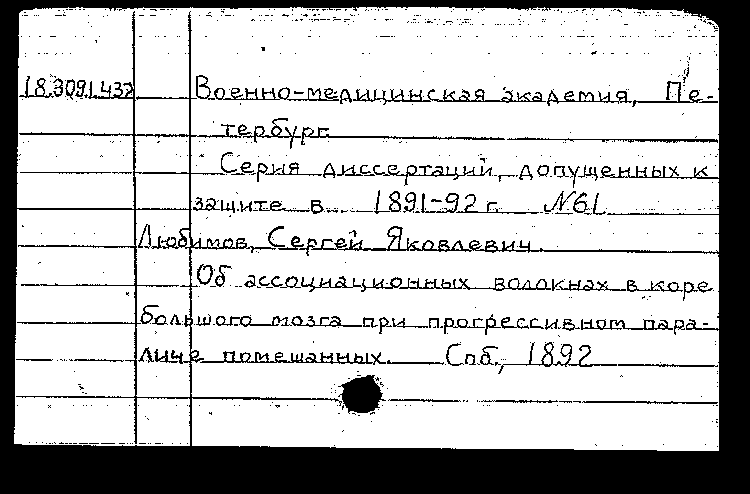 18.309.1.432 Военно-медицинская академия, Пе-
тербург.
Серия диссертаций, допущенных к
защите в 1891-92 г. №61
Любимов, Сергей Яковлевич.
Об ассоциационных волокнах в коре
большого мозга при прогрессивном пара-
личе помешанных. Спб., 1892